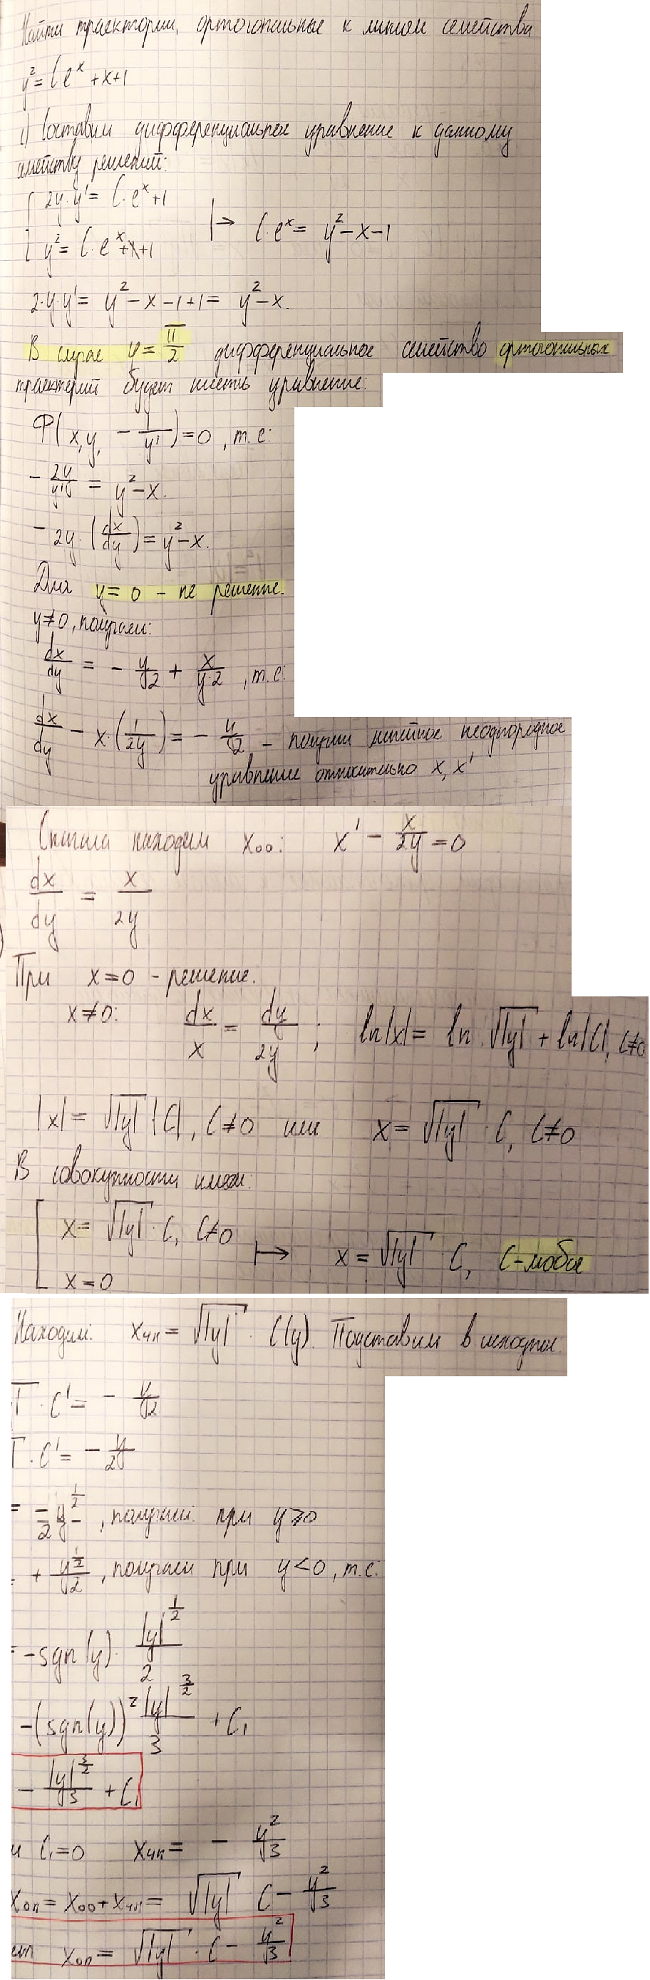 Найти траектории, ортогональные к линиям семейства
y² = Ceˣ + x + 1
1) Составим дифференциальное уравнение к данному
семейству решений:
{ 2y·y' = C·eˣ + 1
{ y² = C·eˣ + x + 1 |→ C·eˣ = y² − x − 1
2·y·y' = y² − x − 1 + 1 = y² − x.
В случае φ = π/2 дифференциальное семейство ортогональных
траекторий будет иметь уравнение:
Φ(x, y, −1/y') = 0, т.е:
−2y/y' = y² − x.
−2y·(dx/dy) = y² − x.
Для y = 0 – не решение.
y ≠ 0, получаем:
dx/dy = −y/2 + x/(y·2), т.е:
dx/dy − x·(1/2y) = −y/2 – получили линейное неоднородное
уравнение относительно x, x'
Сначала находим x₀₀: x' − x/2y = 0
dx/dy = x/2y
При x = 0 - решение.
x ≠ 0: dx/x = dy/2y ; ln|x| = ln √|y| + ln|C|, C≠0
|x| = √|y| |C|, C ≠ 0 или x = √|y| · C, C ≠ 0
В совокупности имеем:
[ x = √|y| · C, C ≠ 0
[ x = 0 |→ x = √|y| C, C – любое
Находим: xчн = √|y| · C(y). Подставим в исходное
· C' = −y/2
· C' = −y/2
= −½y^½, получим при y ≥ 0
+ y^½/2, получаем при y < 0, т.е:
= −sgn(y)·|y|^½/2
−(sgn(y))² |y|^(3/2)/3 + C₁
−|y|^(3/2)/3 + C₁
и C₁ = 0 xчн = −y²/3
xон = x₀₀ + xчн = √|y| C − y²/3
ет xон = √|y| · C − y²/3